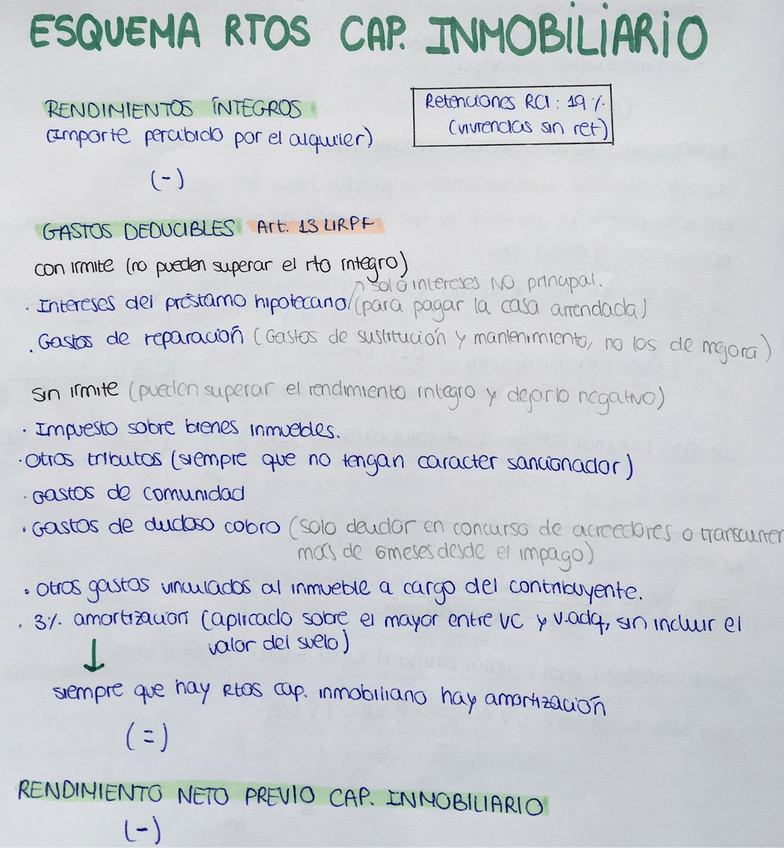 ESQUEMA RTOS CAP. INMOBILIARIO
RENDIMIENTOS ÍNTEGROS
(importe percibido por el alquiler)
Retenciones RCI: 19%
(viviendas sin ret)
(-)
GASTOS DEDUCIBLES Art. 13 LIRPF
con límite (no pueden superar el rto íntegro)
solo intereses NO principal.
· Intereses del préstamo hipotecario (para pagar la casa arrendada)
· Gastos de reparación (Gastos de sustitución y mantenimiento, no los de mejora)
sin límite (pueden superar el rendimiento íntegro y dejarlo negativo)
· Impuesto sobre bienes inmuebles.
· Otros tributos (siempre que no tengan caracter sancionador)
· Gastos de comunidad
· Gastos de dudoso cobro (solo deudor en concurso de acreedores o
más de 6 meses desde el impago)
· Otros gastos vinculados al inmueble a cargo del contribuyente.
· 3% amortización (aplicado sobre el mayor entre VC y V.adq, sin incluir el
valor del suelo)
↓
siempre que hay Rtos cap. inmobiliario hay amortización
(=)
RENDIMIENTO NETO PREVIO CAP. INMOBILIARIO
(-)